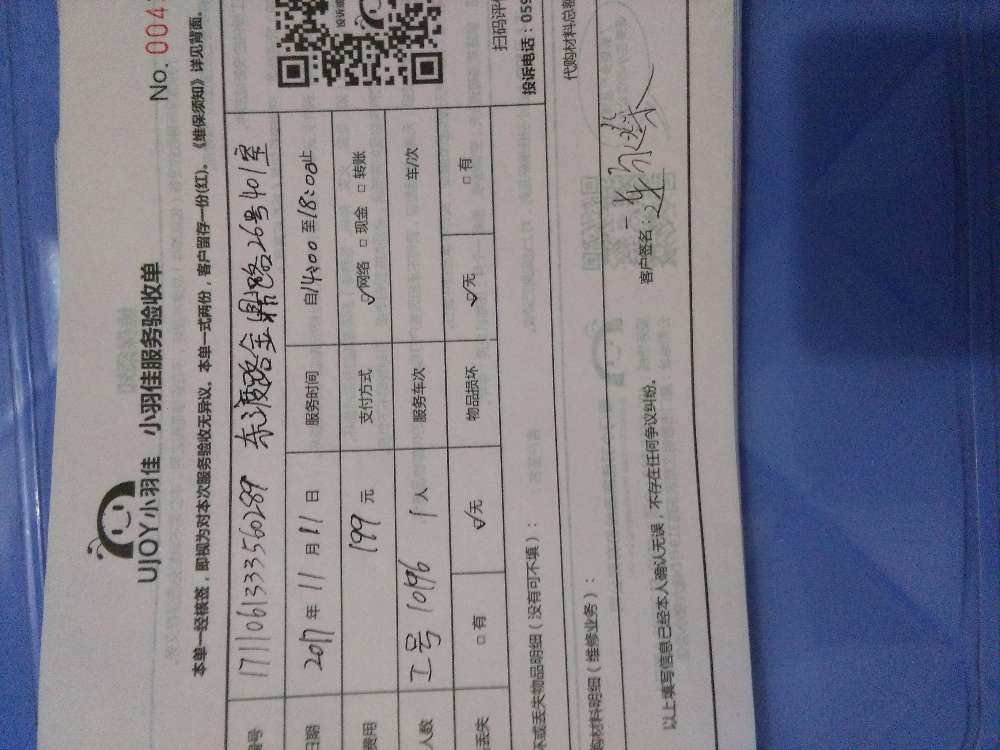 UJOY小羽佳 小羽佳服务验收单
No. 004
本单一经核签，即视为对本次服务验收无异议。本单一式两份，客户留存一份(红)。《维保须知》详见背面。
编号 1711061333560289 东渡路金鼎路26号401室
日期 2017 年 11 月 11 日 服务时间 自14:00 至18:00止
费用 199 元 支付方式 ☑网络 □现金 □转账
人数 工号 10196 1 人 服务车次 车/次
丢失 □有 ☑无 物品损坏 ☑无 □有
坏或丢失物品明细（没有可不填）：
扫码评价
投诉电话：059
购材料明细（维修业务）：
代购材料总额
以上填写信息已经本人确认无误，不存在任何争议纠纷。
客户签名：